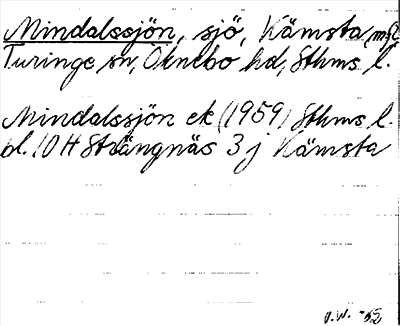 Mindalssjön, sjö, Kämsta, mfl
Turinge sn, Öknebo hd, Sthms l.
Mindalssjön ek (1959) Sthms l.
bl. 10 H Strängnäs 3 j Kämsta
O.W. -52